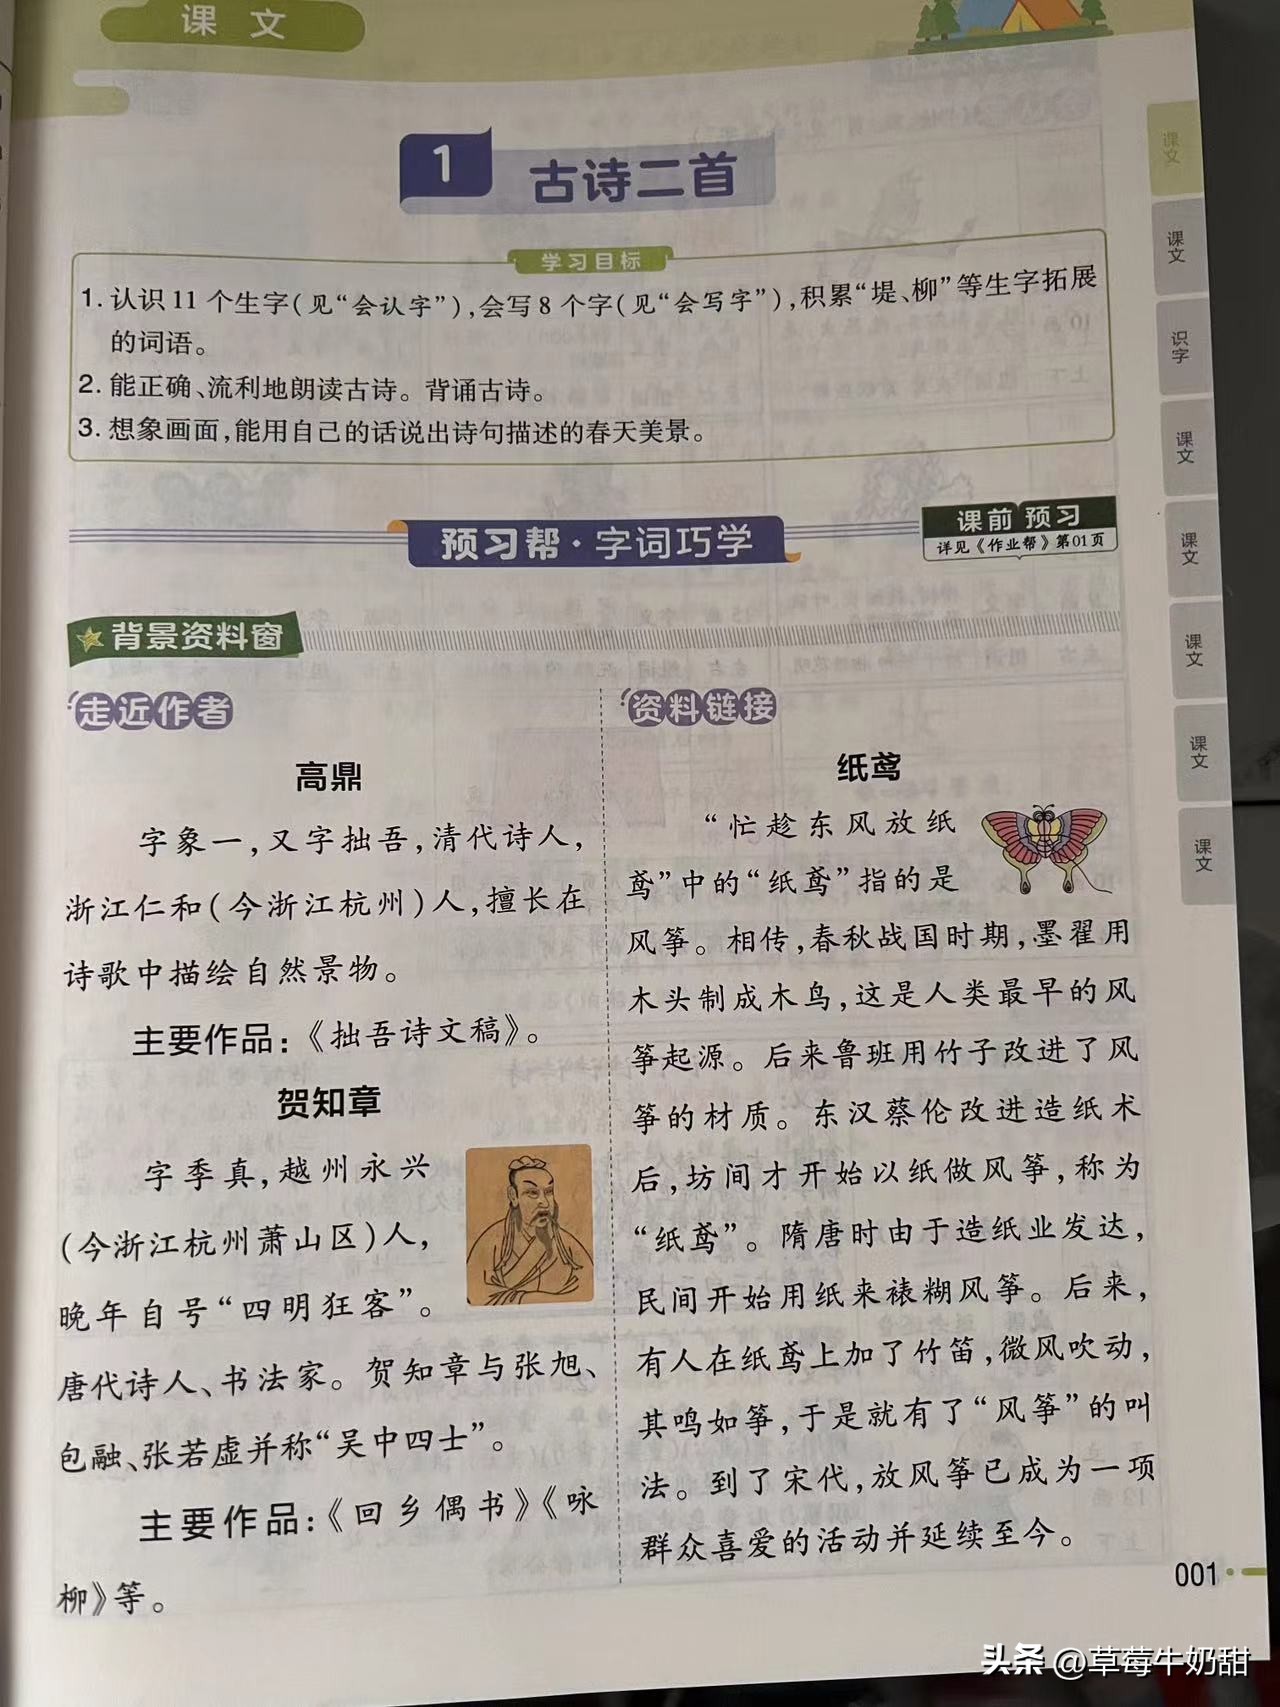 课文
1
古诗二首
学习目标
1. 认识11个生字(见“会认字”),会写8个字(见“会写字”),积累“堤、柳”等生字拓展
的词语。
2. 能正确、流利地朗读古诗。背诵古诗。
3. 想象画面,能用自己的话说出诗句描述的春天美景。
预习帮·字词巧学
课前 预习
详见《作业帮》第01页
背景资料窗
走近作者
高鼎
字象一,又字拙吾,清代诗人,
浙江仁和(今浙江杭州)人,擅长在
诗歌中描绘自然景物。
主要作品:《拙吾诗文稿》。
贺知章
字季真,越州永兴
(今浙江杭州萧山区)人,
晚年自号“四明狂客”。
唐代诗人、书法家。贺知章与张旭、
包融、张若虚并称“吴中四士”。
主要作品:《回乡偶书》《咏
柳》等。
资料链接
纸鸢
“忙趁东风放纸
鸢”中的“纸鸢”指的是
风筝。相传,春秋战国时期,墨翟用
木头制成木鸟,这是人类最早的风
筝起源。后来鲁班用竹子改进了风
筝的材质。东汉蔡伦改进造纸术
后,坊间才开始以纸做风筝,称为
“纸鸢”。隋唐时由于造纸业发达,
民间开始用纸来裱糊风筝。后来,
有人在纸鸢上加了竹笛,微风吹动,
其鸣如筝,于是就有了“风筝”的叫
法。到了宋代,放风筝已成为一项
群众喜爱的活动并延续至今。
课文
课文
识字
课文
课文
课文
课文
课文
001
头条 @草莓牛奶甜